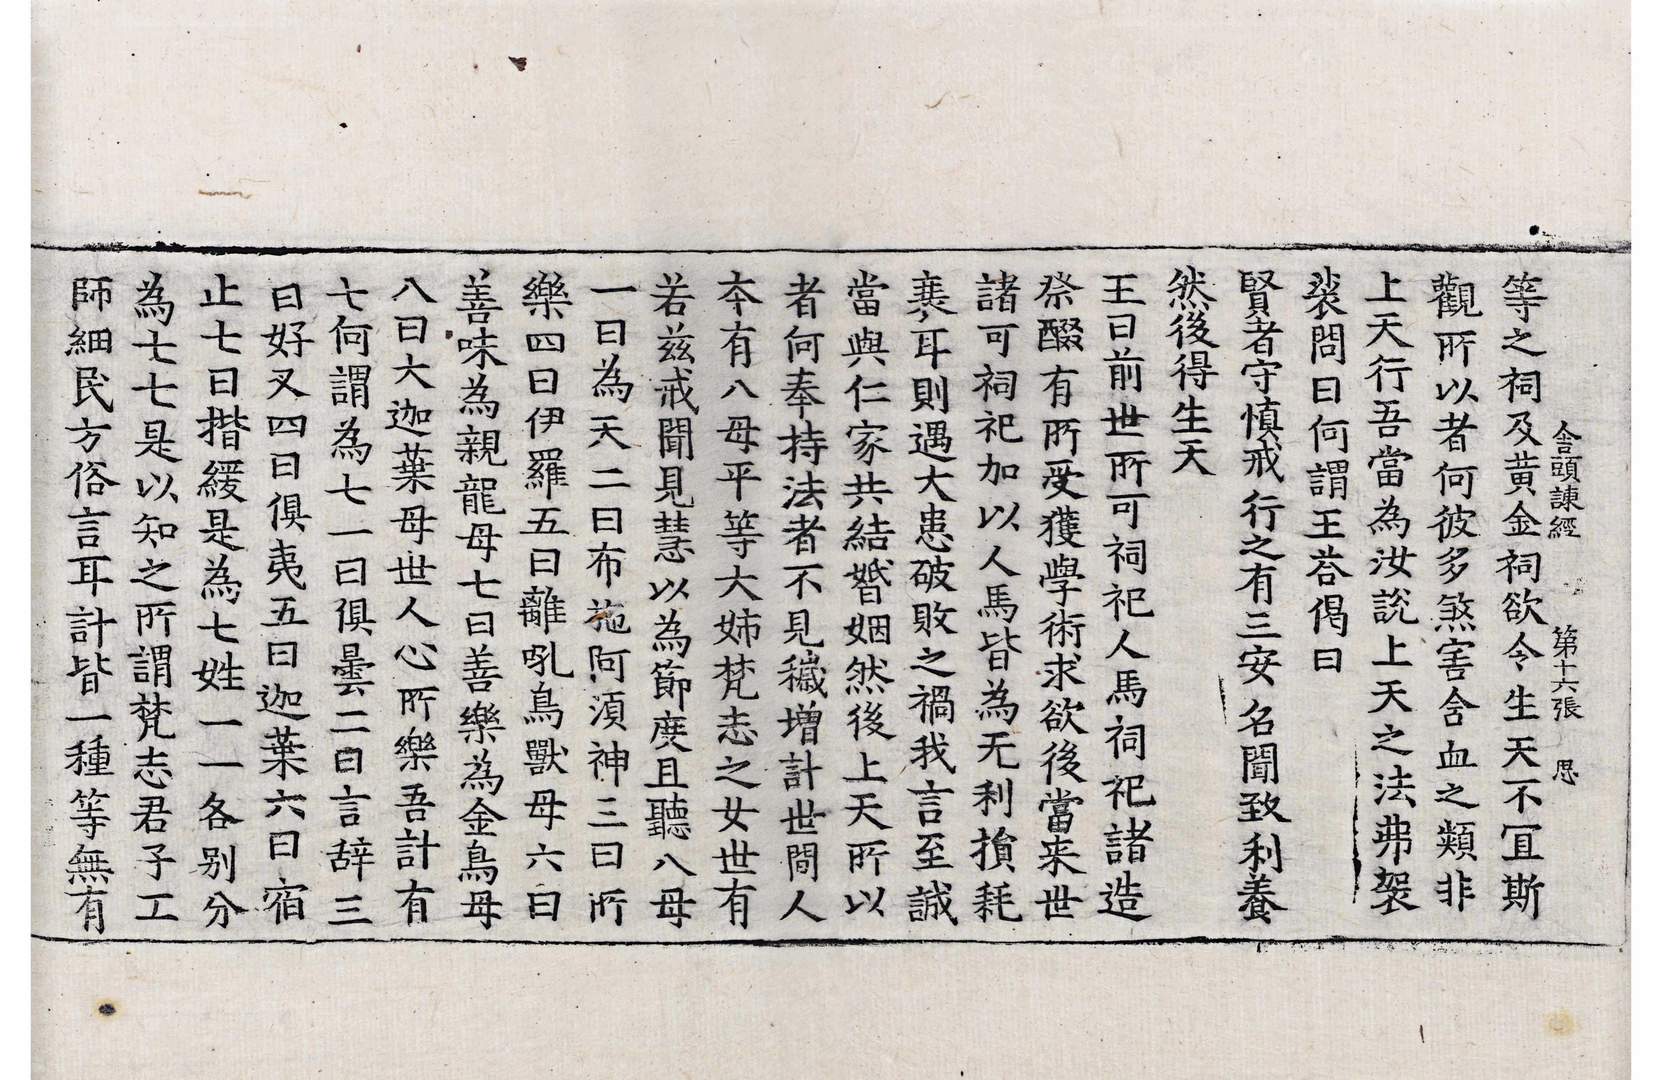 舍頭諫經 第十六張 思
等之祠及黄金祠欲令生天不宜斯
觀所以者何彼多煞害含血之類非
上天行吾當為汝說上天之法弗袈
裟問曰何謂王荅偈曰
賢者守慎戒 行之有三安 名聞致利養
然後得生天
王曰前世所可祠祀人馬祠祀諸造
祭醊有所受獲學術求欲後當来世
諸可祠祀加以人馬皆為无利損耗
衰耳則遇大患破敗之禍我言至誠
當與仁家共結婚姻然後上天所以
者何奉持法者不見穢增計世間人
夲有八母平等大姊梵志之女世有
若兹戒聞見慧以為節度且聽八母
一曰為天二曰布拖阿湏神三曰所
樂四曰伊羅五曰離吼鳥獸母六曰
善味為親龍母七曰善樂為金鳥母
八曰大迦葉母世人心所樂吾計有
七何謂為七一曰俱曇二曰言辞三
曰好叉四曰俱夷五曰迦葉六曰宿
止七曰揩緩是為七姓一一各别分
為七七是以知之所謂梵志君子工
師細民方俗言耳計皆一種等無有